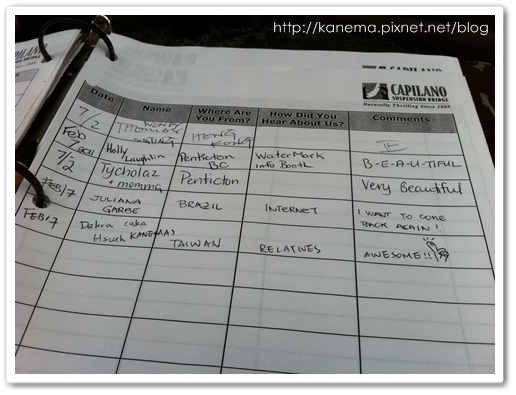 http://kanema.pixnet.net/blog
CAPILANO
CAPILANO
SUSPENSION BRIDGE
Naturally Thrilling Since 1889
Date Name Where Are You From? How Did You Hear About Us? Comments
7/2 WENDY THOMAS HONG KONG
Feb 7/2011 Holly Laughlin Penticton BC WaterMark Info Booth B-E-A-U-TIFUL
7/2 Tycholaz + momma Penticton Very Beautiful
FEB/7 JULIANA GARBE BRAZIL INTERNET I WANT TO COME BACK AGAIN!
FEB/7 Debra (aka Hsueh KANEMA) TAIWAN RELATIVES AWESOME!!